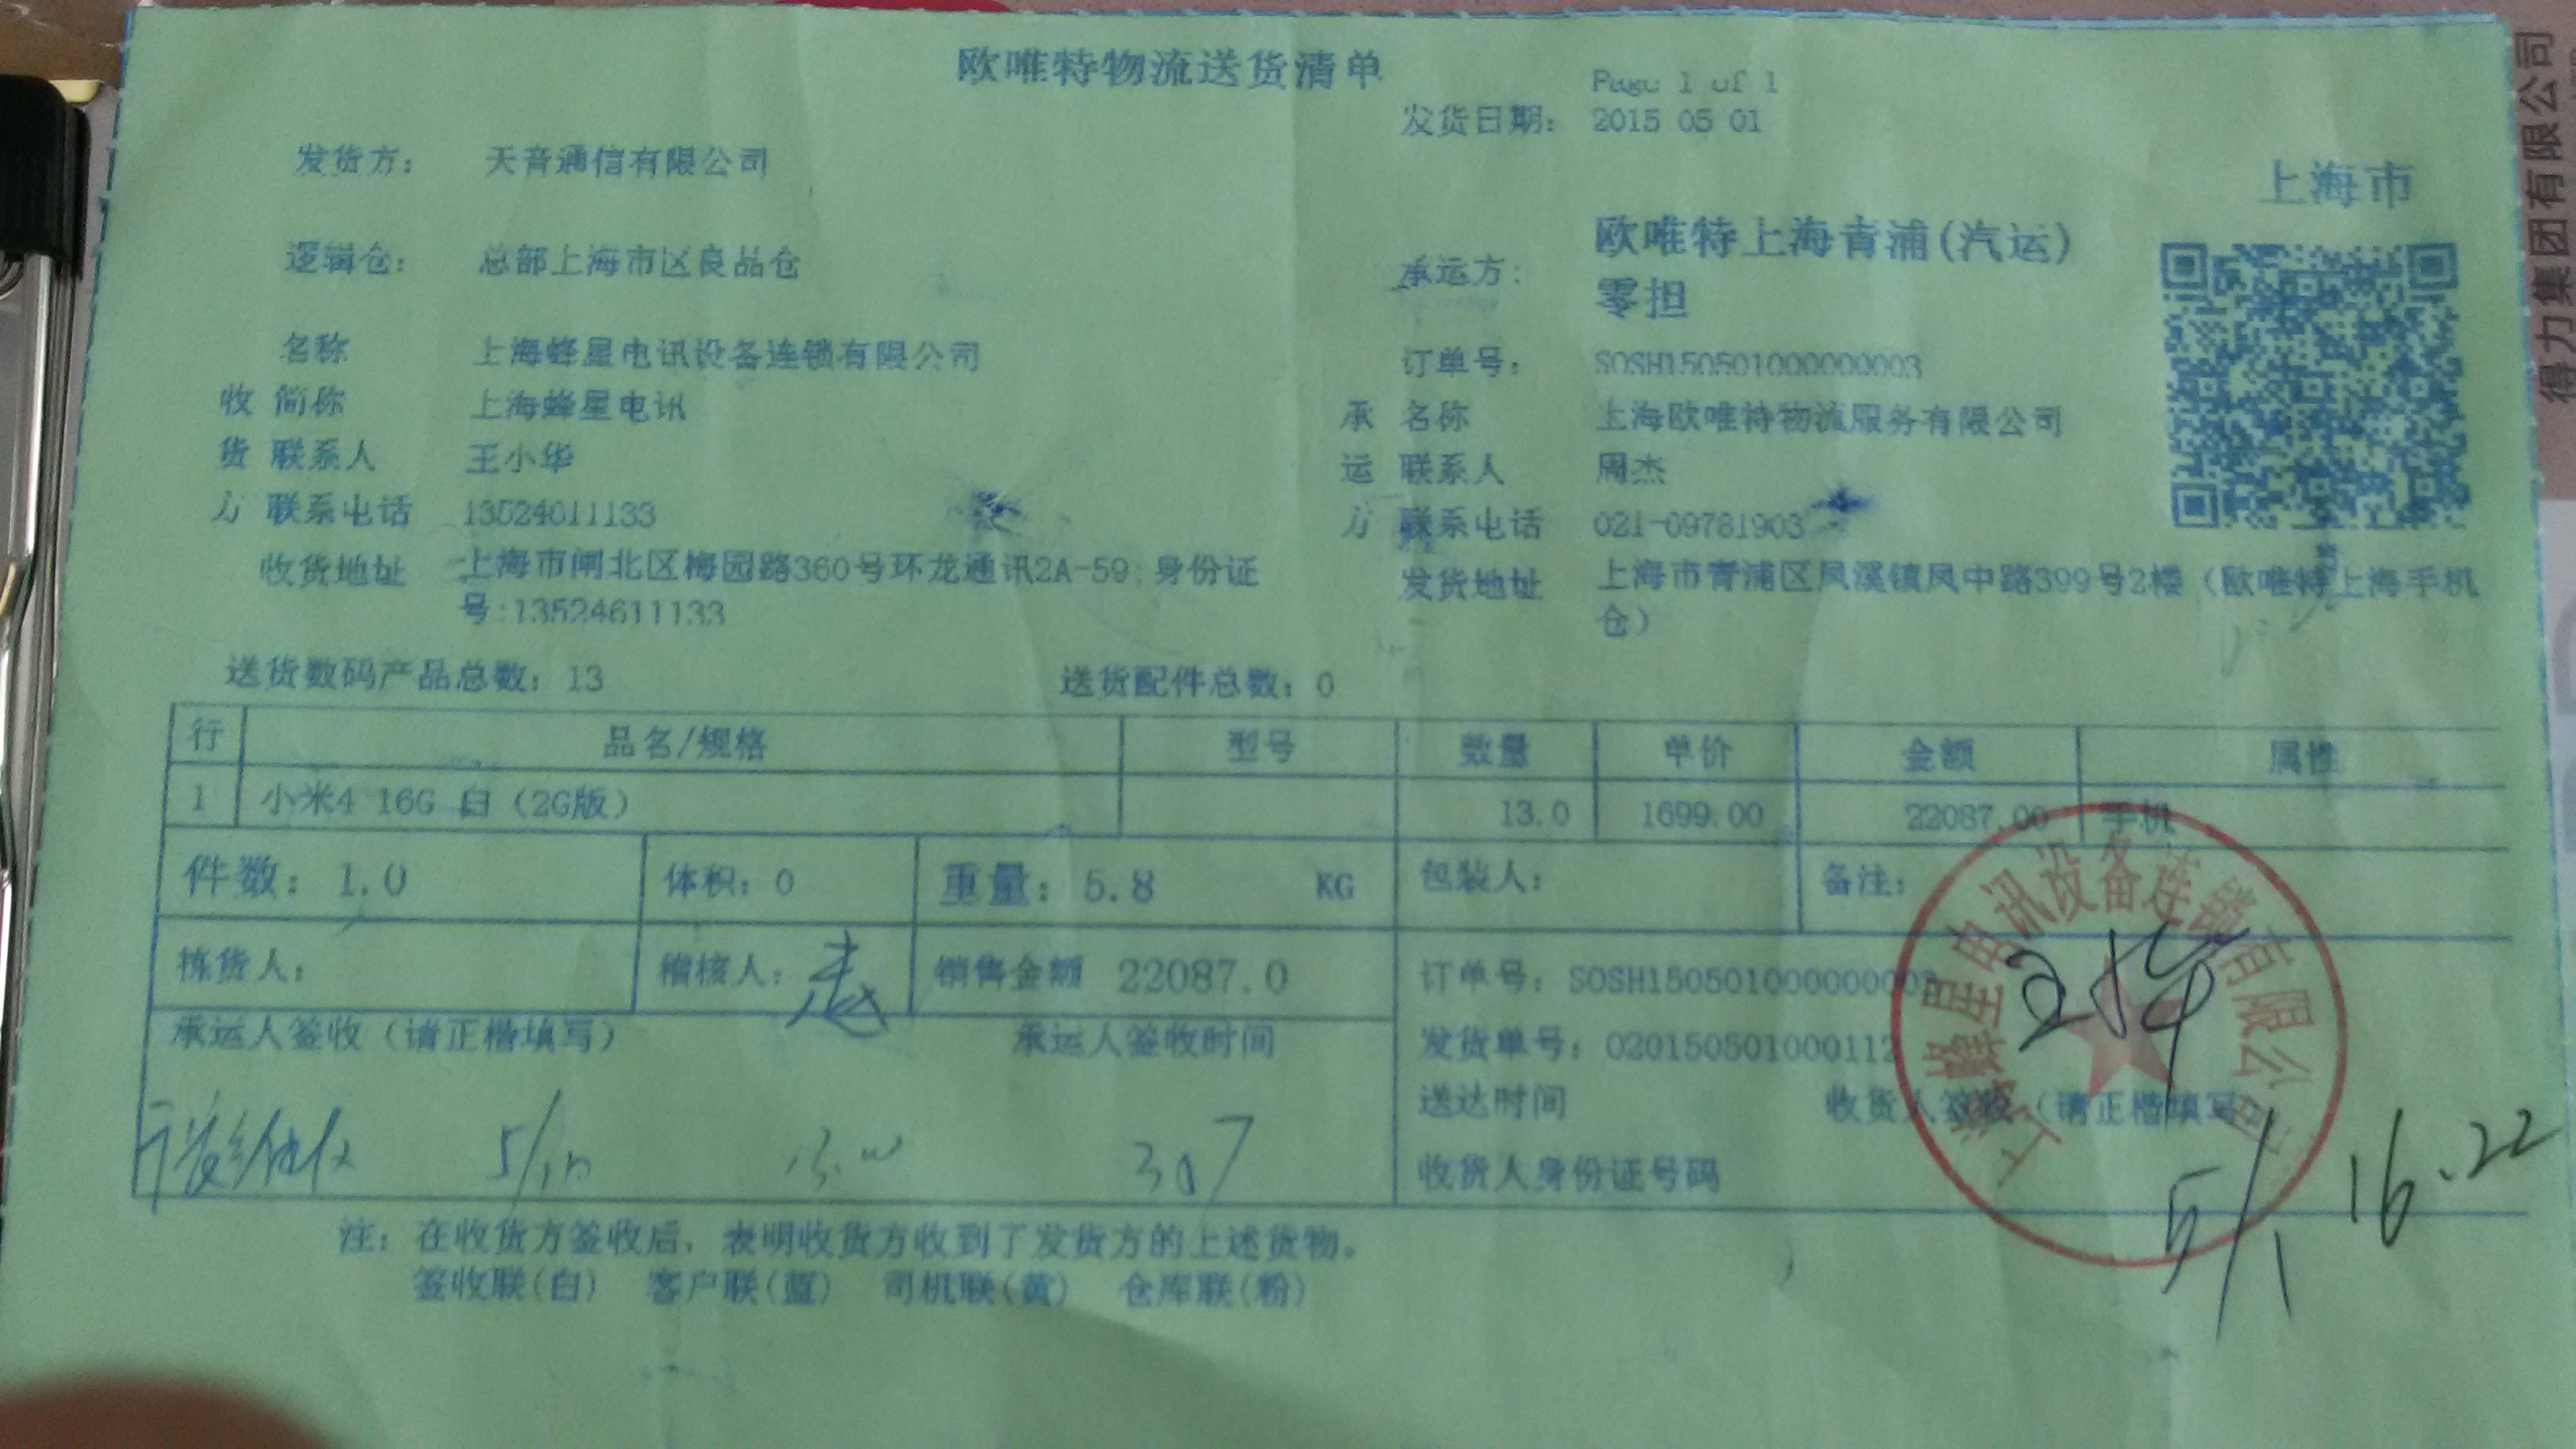 欧唯特物流送货清单
Page 1 of 1
发货日期: 2015 05 01
发货方: 天音通信有限公司
上海市
逻辑仓: 总部上海市区良品仓
承运方: 欧唯特上海青浦(汽运)
零担
名称 上海蜂星电讯设备连锁有限公司
订单号: SOSH150501000000003
收 简称 上海蜂星电讯
承 名称 上海欧唯特物流服务有限公司
货 联系人 王小华
运 联系人 周杰
方 联系电话 13524611133
方 联系电话 021-09781903
收货地址 上海市闸北区梅园路360号环龙通讯2A-59;身份证
号:13524611133
发货地址 上海市青浦区凤溪镇凤中路399号2楼（欧唯特上海手机
仓）
送货数码产品总数: 13 送货配件总数: 0
行 品名/规格 型号 数量 单价 金额 属性
1 小米4 16G 白（2G版） 13.0 1699.00 22087.00 手机
件数: 1.0 体积: 0 重量: 5.8 KG 包装人: 备注:
拣货人: 稽核人: 销售金额 22087.0 订单号: SOSH150501000000003
承运人签收（请正楷填写） 承运人签收时间
发货单号: 020150501000112
送达时间 收货人签收（请正楷填写
收货人身份证号码
307
5/1 16.22
上海蜂星电讯设备连锁有限公司
注: 在收货方签收后，表明收货方收到了发货方的上述货物。
签收联(白) 客户联(蓝) 司机联(黄) 仓库联(粉)
得力集团有限公司